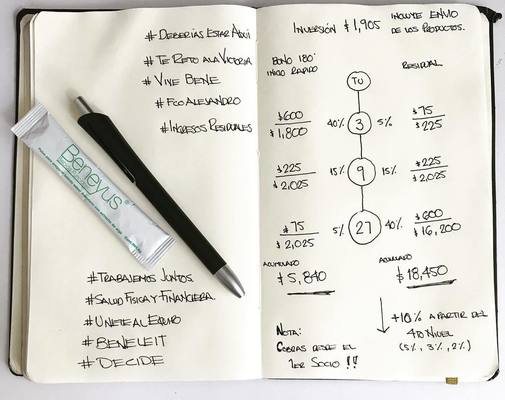 #DEBERÍAS ESTAR AQUÍ
#TE RETO A LA VICTORIA
#VIVE BENE
#FCOALEJANDRO
#INGRESOS RESIDUALES
Beneyus
#TRABAJEMOS JUNTOS.
#SALUD FÍSICA Y FINANCIERA.
#UNETE AL EQUIPO
#BENELEIT
#DECIDE
INVERSIÓN $1,905 INCLUYE ENVIO
DE LOS PRODUCTOS.
BONO 180°
INICIO RAPIDO
RESIDUAL
TU
$600
$1,800
40% 3 5%
$75
$225
$225
$2,025
15% 9 15%
$225
$2,025
$75
$2,025
5% 27 40%
$600
$16,200
ACUMULADO
$5,840
ACUMULADO
$18,450
+10% A PARTIR DEL
4TO NIVEL
(5%, 3%, 2%)
NOTA:
COBRAS DESDE EL
1ER SOCIO !!